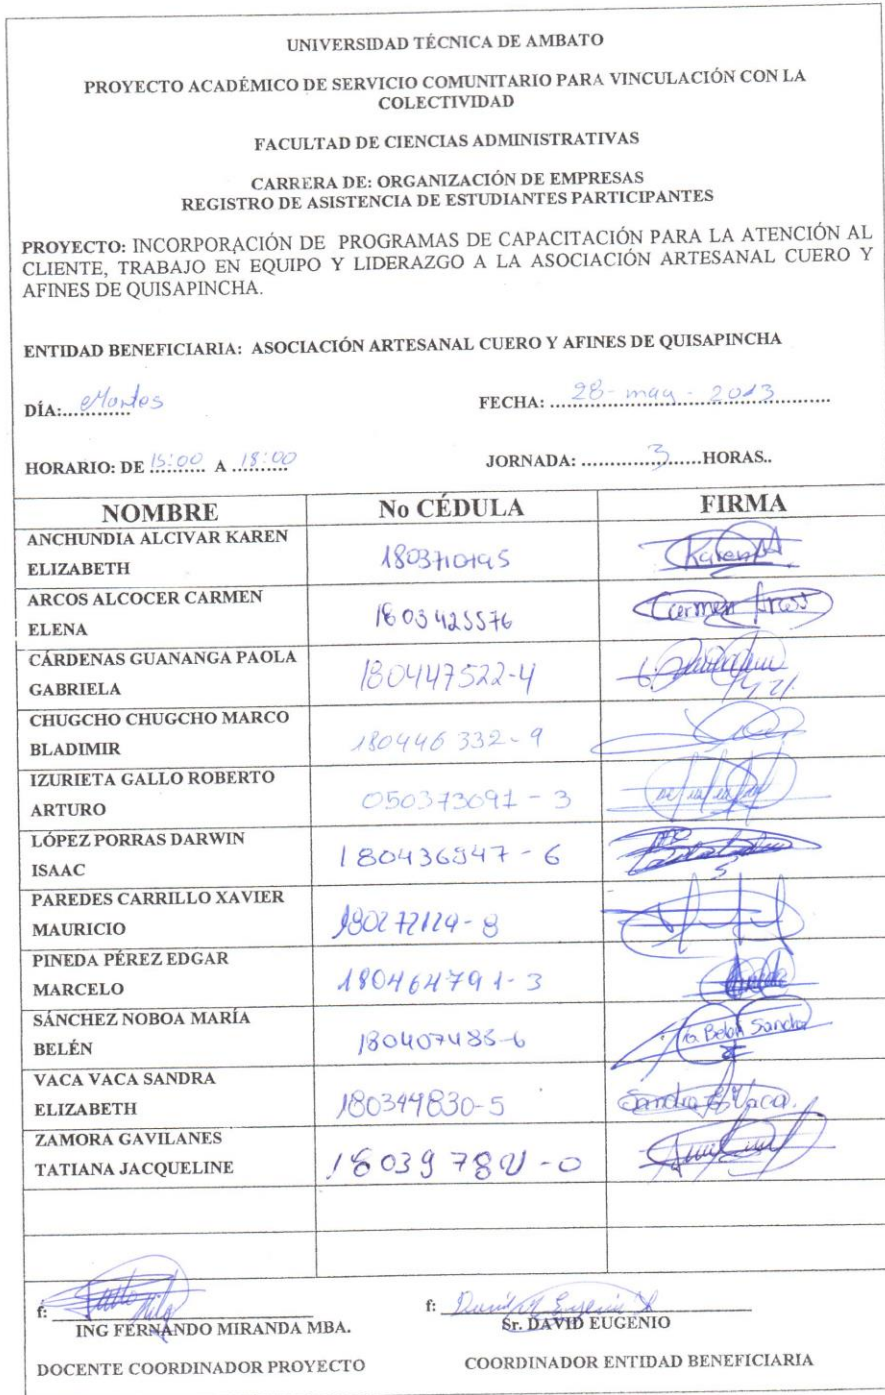 UNIVERSIDAD TÉCNICA DE AMBATO
PROYECTO ACADÉMICO DE SERVICIO COMUNITARIO PARA VINCULACIÓN CON LA
COLECTIVIDAD
FACULTAD DE CIENCIAS ADMINISTRATIVAS
CARRERA DE: ORGANIZACIÓN DE EMPRESAS
REGISTRO DE ASISTENCIA DE ESTUDIANTES PARTICIPANTES
PROYECTO: INCORPORACIÓN DE PROGRAMAS DE CAPACITACIÓN PARA LA ATENCIÓN AL
CLIENTE, TRABAJO EN EQUIPO Y LIDERAZGO A LA ASOCIACIÓN ARTESANAL CUERO Y
AFINES DE QUISAPINCHA.
ENTIDAD BENEFICIARIA: ASOCIACIÓN ARTESANAL CUERO Y AFINES DE QUISAPINCHA
DÍA: Martes FECHA: 28-may-2013
HORARIO: DE 15:00 A 18:00 JORNADA: 3 HORAS..
NOMBRE No CÉDULA FIRMA
ANCHUNDIA ALCIVAR KAREN
ELIZABETH 1803710195 Karen
ARCOS ALCOCER CARMEN
ELENA 1803425576 Carmen Arcos
CÁRDENAS GUANANGA PAOLA
GABRIELA 180447522-4
CHUGCHO CHUGCHO MARCO
BLADIMIR 180446332-9
IZURIETA GALLO ROBERTO
ARTURO 050373091-3
LÓPEZ PORRAS DARWIN
ISAAC 180436947-6
PAREDES CARRILLO XAVIER
MAURICIO
PINEDA PÉREZ EDGAR
MARCELO 180464791-3
SÁNCHEZ NOBOA MARÍA
BELÉN Ma. Belén Sánchez
VACA VACA SANDRA
ELIZABETH 180349830-5 Sandra E Vaca.
ZAMORA GAVILANES
TATIANA JACQUELINE
f: f: David Eugenio
ING FERNANDO MIRANDA MBA. Sr. DAVID EUGENIO
DOCENTE COORDINADOR PROYECTO COORDINADOR ENTIDAD BENEFICIARIA